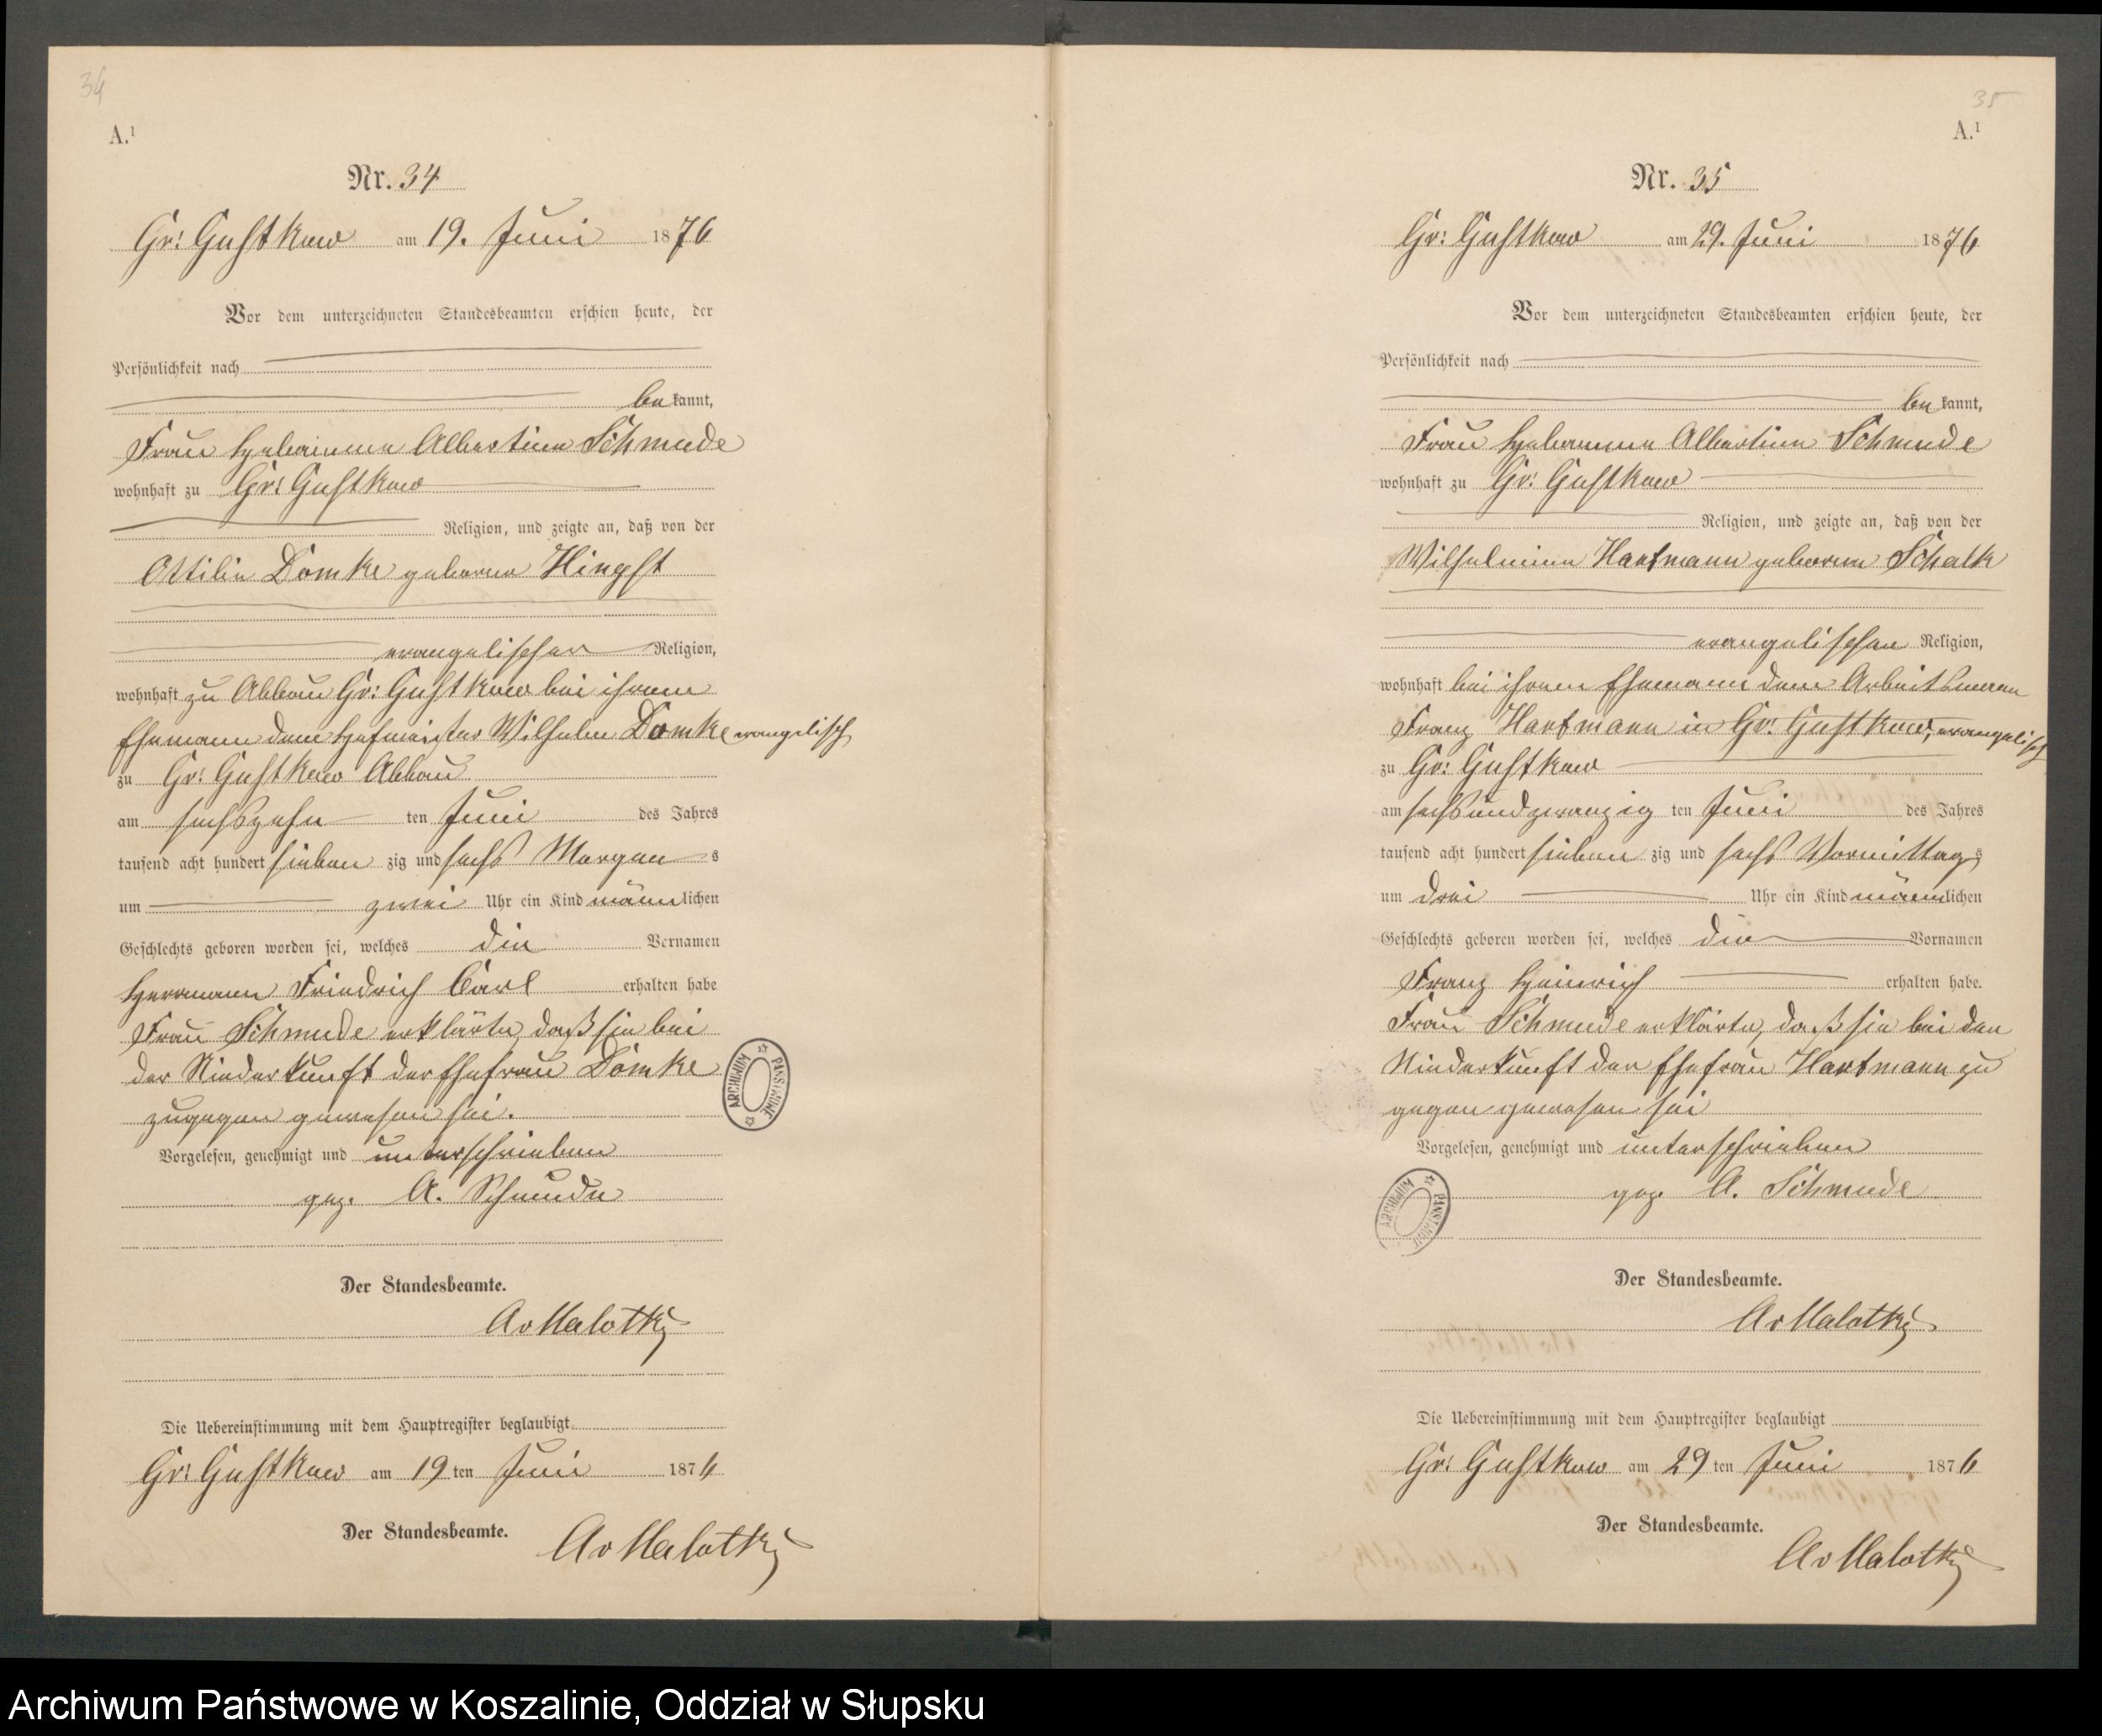 34
A.¹
Nr. 34
Gr: Gustkow am 19. Juni 1876
Vor dem unterzeichneten Standesbeamten erschien heute, der
Persönlichkeit nach
be kannt,
Frau Hebamme Albertine Schmude
wohnhaft zu Gr: Gustkow
Religion, und zeigte an, daß von der
Ottilie Domke geborne Hingst
evangelischer Religion,
wohnhaft zu Abbau Gr: Gustkow bei ihrem
Ehemann dem Hofmeister Wilhelm Domke evangelisch
zu Gr: Gustkow Abbau
am sechszehn ten Juni des Jahres
tausend acht hundert sieben zig und sechs Morgen s
um zwei Uhr ein Kind männlichen
Geschlechts geboren worden sei, welches die Vornamen
Herrmann Friedrich Carl erhalten habe
Frau Schmude erklärte, daß sie bei
der Niederkunft der Ehefrau Domke
zugegen gewesen sei.
Vorgelesen, genehmigt und unterschrieben
gez. A. Schmude
ARCHIWUM PAŃSTWOWE
Der Standesbeamte.
A v Malotky
Die Uebereinstimmung mit dem Hauptregister beglaubigt
Gr: Gustkow am 19 ten Juni 1876
Der Standesbeamte. A v Malotky
35
A.¹
Nr. 35
Gr: Gustkow am 29. Juni 1876
Vor dem unterzeichneten Standesbeamten erschien heute, der
Persönlichkeit nach
be kannt,
Frau Hebamme Albertine Schmude
wohnhaft zu Gr: Gustkow
Religion, und zeigte an, daß von der
Wilhelmine Hartmann geborne Schalk
evangelischen Religion,
wohnhaft bei ihrem Ehemann dem Arbeitsmann
Franz Hartmann in Gr: Gustkow, evangelisch
zu Gr: Gustkow
am sechsundzwanzig ten Juni des Jahres
tausend acht hundert sieben zig und sechs Vormittag s
um drei Uhr ein Kind männlichen
Geschlechts geboren worden sei, welches die Vornamen
Franz Heinrich erhalten habe.
Frau Schmude erklärte, daß sie bei der
Niederkunft der Ehefrau Hartmann zu
gegen gewesen sei
Vorgelesen, genehmigt und unterschrieben
gez. A. Schmude
ARCHIWUM PAŃSTWOWE
Der Standesbeamte.
A v Malotky
Die Uebereinstimmung mit dem Hauptregister beglaubigt
Gr: Gustkow am 29 ten Juni 1876
Der Standesbeamte.
A v Malotky
Archiwum Państwowe w Koszalinie, Oddział w Słupsku